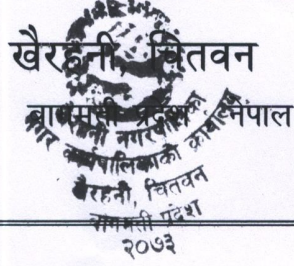 खैरहनी, चितवन
बागमती प्रदेश, नेपाल
नगरपालिका
नगर कार्यपालिकाको कार्यालय
खैरहनी, चितवन
बागमती प्रदेश
२०७३